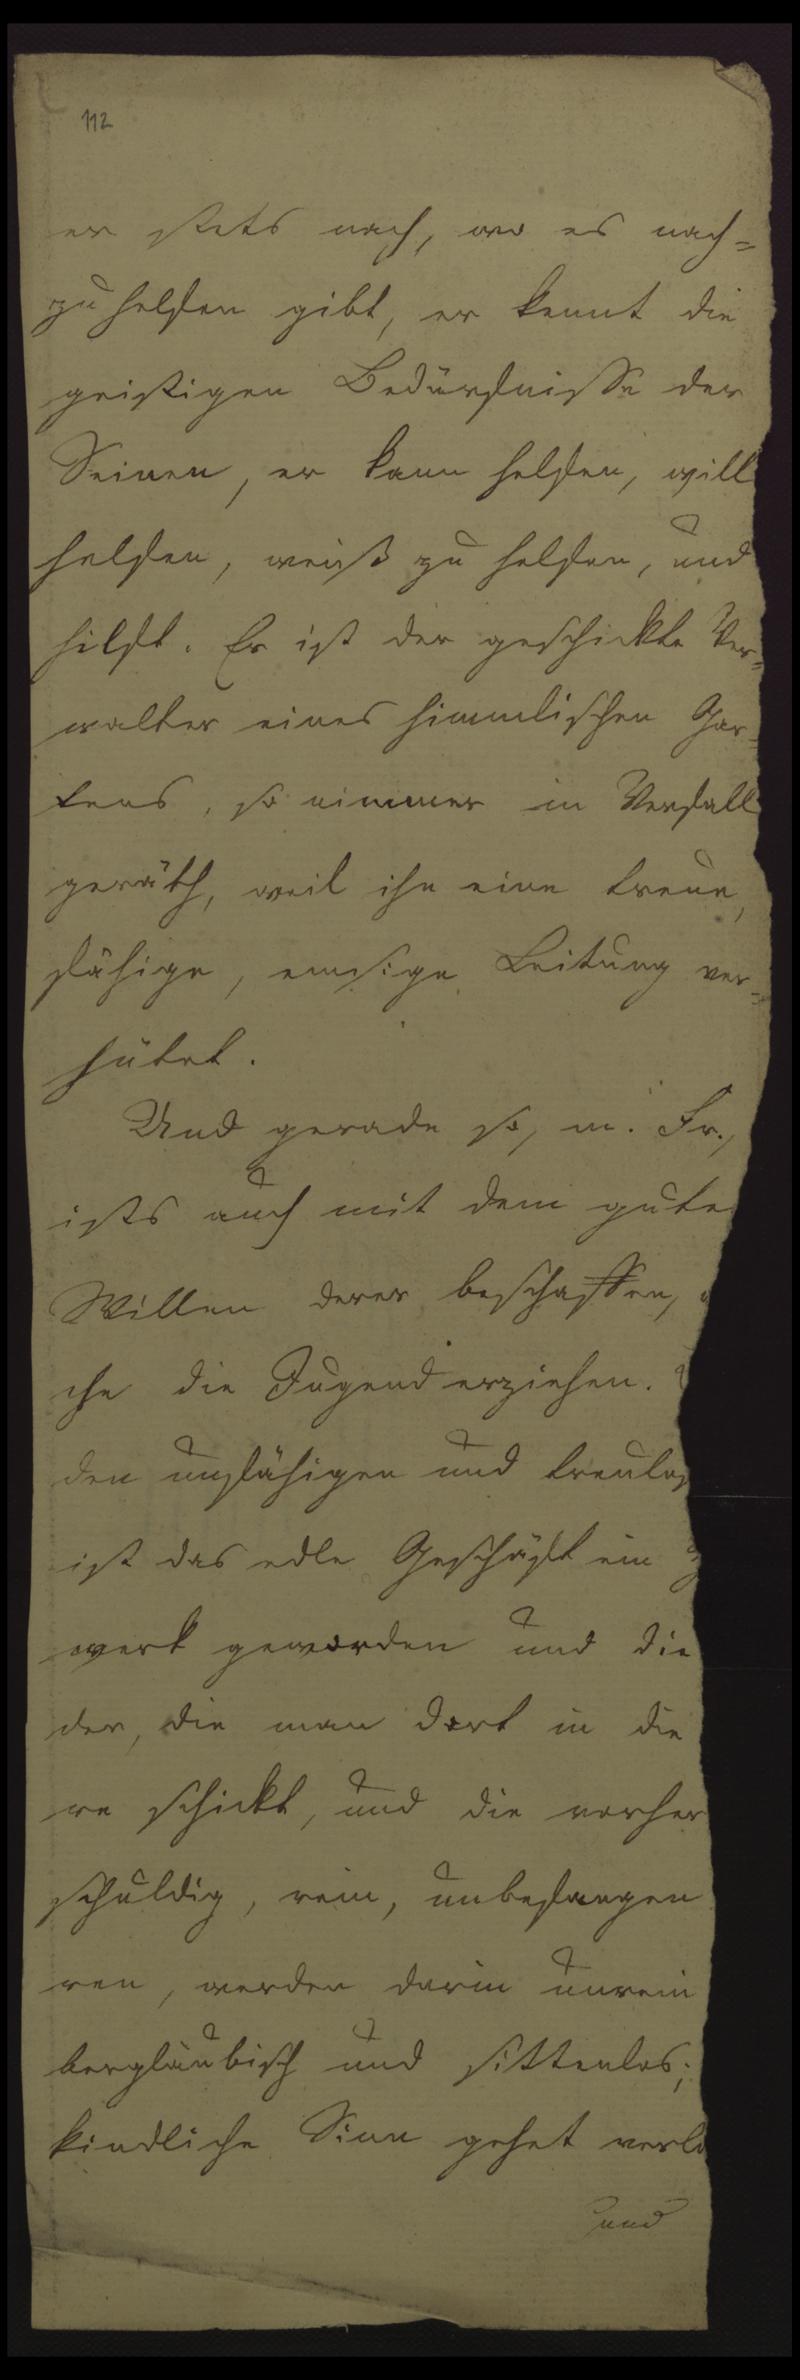 112
er stets nach, wo es nach=
zuhelfen gibt, er kennt die
geistigen Bedürfnisse der
Seinen, er kann helfen, will
helfen, weiß zu helfen, und
hilft. Er ist der geschickte Ver=
walter eines himmlischen Gar=
tens, so nimmer in Verfall
geräth, weil ihn eine treue,
fähige, emsige Leitung ver=
hütet.
Und gerade so, m. Fr.,
ists auch mit dem gute
Willen derer beschaffen,
che die Jugend erziehen.
den unfähigen und treulos
ist das edle Geschäft ein
werk geworden und die
der, die man dort in die
re schickt, und die vorher
schuldig, rein, unbefangen
ren, werden darin unrein
bergläubisch und sittenlos;
kindliche Sinn gehet verlo
und